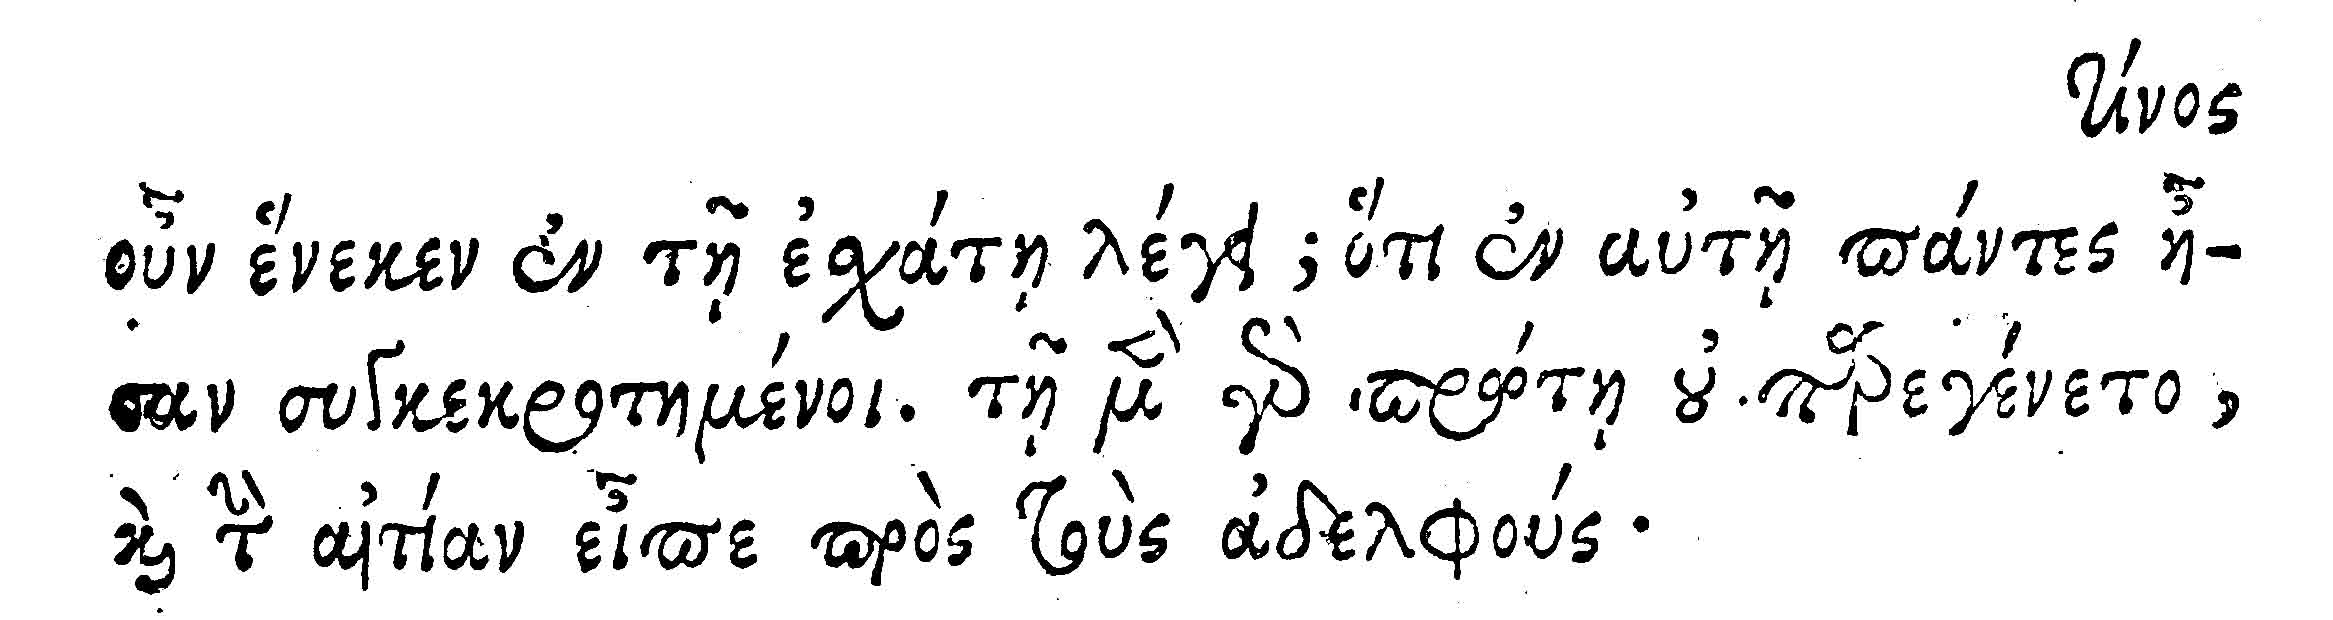 τίνος
οὖν ἕνεκεν ἐν τῇ ἐσχάτῃ λέγει; ὅτι ἐν αὐτῇ πάντες ἦ-
σαν συγκεκροτημένοι. τῇ μὲν γὰρ πρώτῃ οὐ παρεγένετο,
καὶ τὴν αἰτίαν εἶπε πρὸς τοὺς ἀδελφούς.